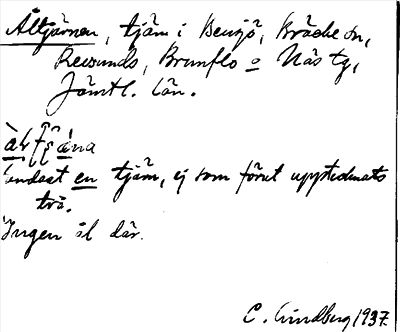 Åltjärnen, tjärn i Bensjö, Bräcke sn,
Revsunds, Brunflo o Näs tg,
Jämtl. län.
Endast en tjärn, ej som förut upptecknats
två.
Ingen ål där.
C. Lindberg 1937.